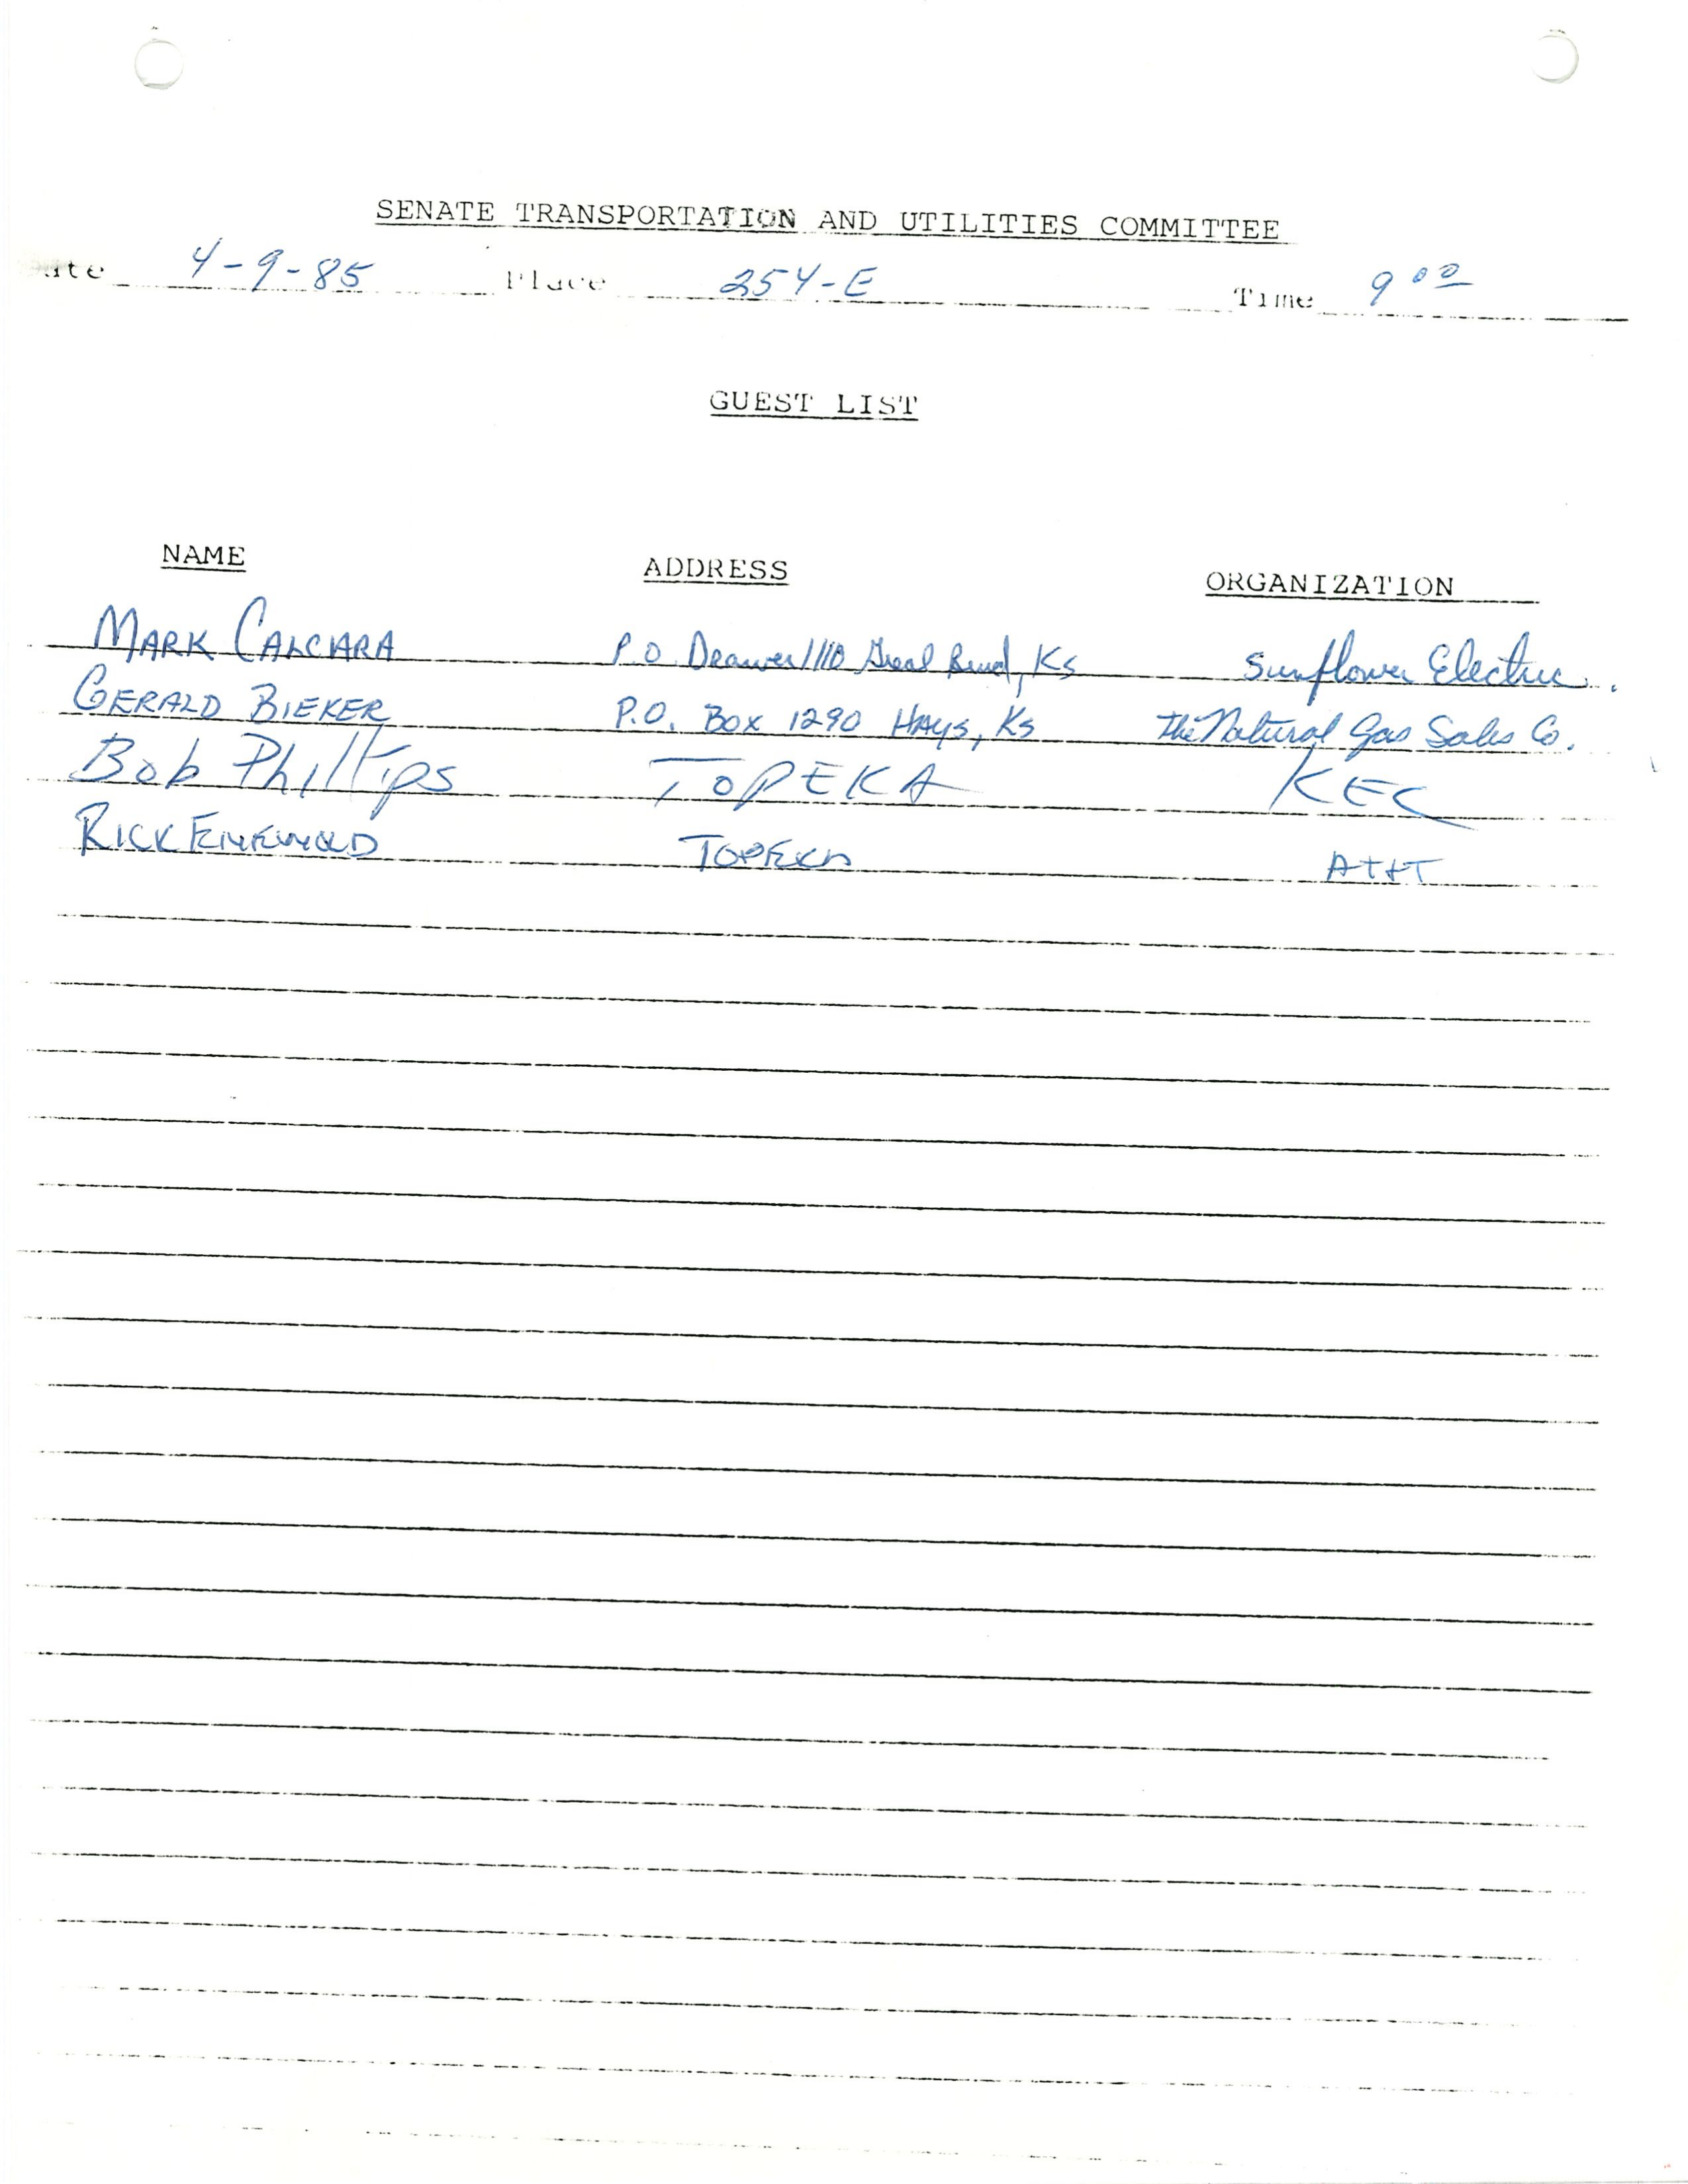 SENATE TRANSPORTATION AND UTILITIES COMMITTEE
ate 4-9-85 Place 254-E Time 9 00
GUEST LIST
NAME ADDRESS ORGANIZATION
MARK CALCARA P.O. Drawer 1110 Great Bend, Ks Sunflower Electric.
GERALD BIEKER P.O. Box 1290 HAys, Ks the Natural Gas Sales Co.
Bob Phillips TOPEKA KEC
RICK TOPEKA AT&T